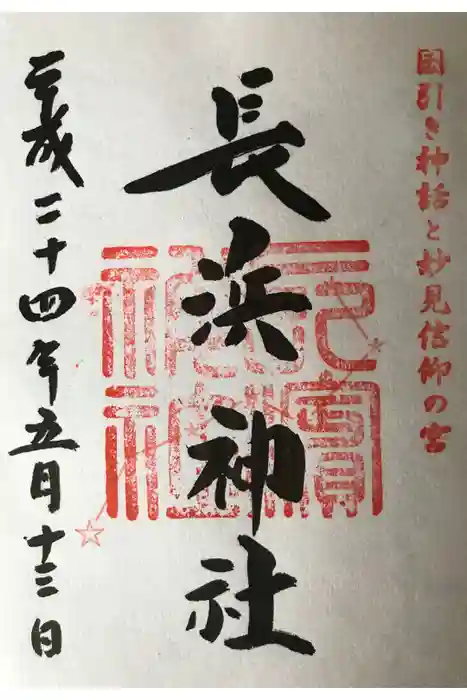 国引き神話と妙見信仰の宮
長浜神社
平成二十四年五月十三日